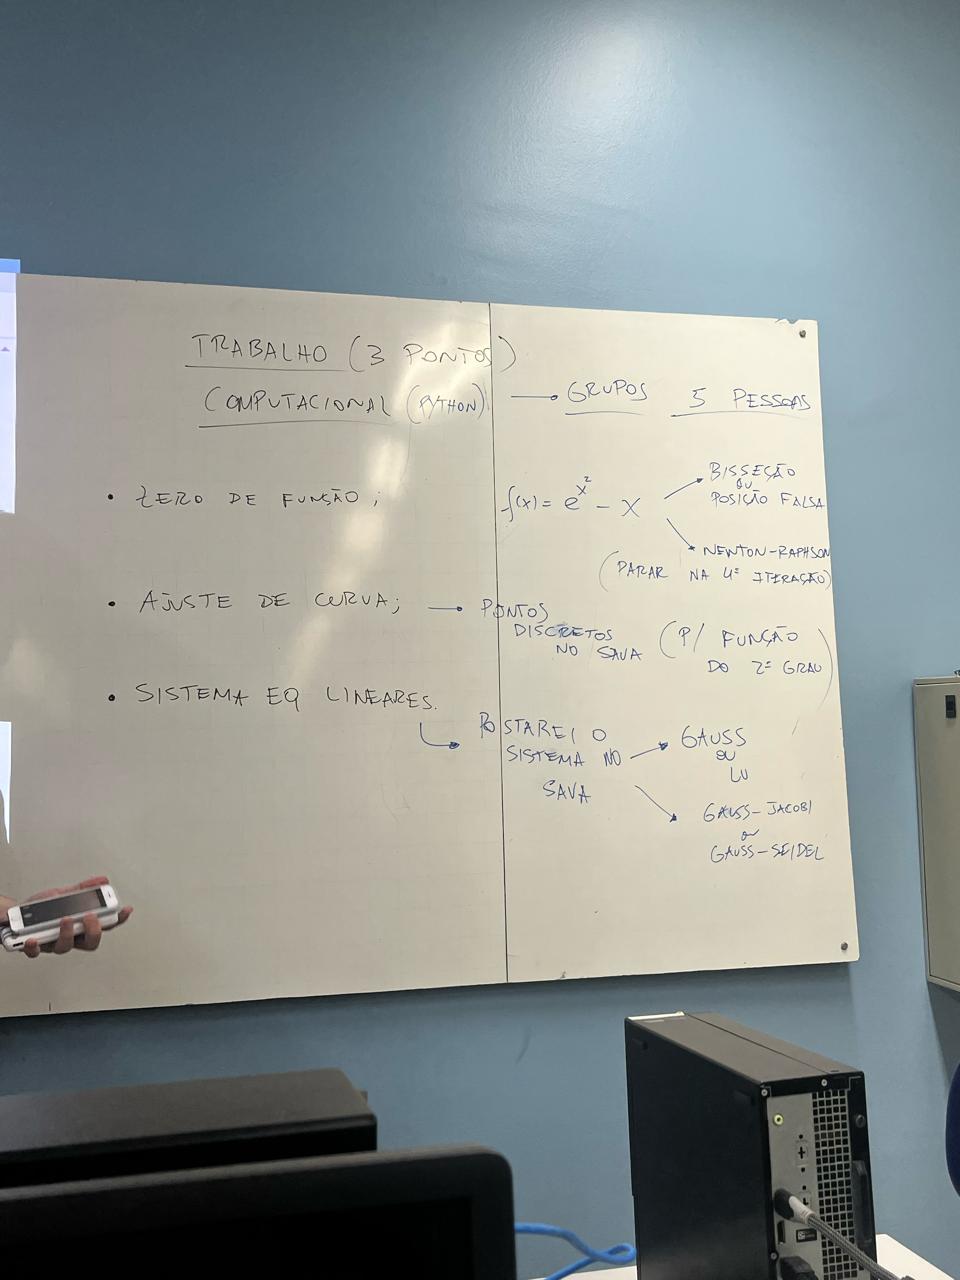 TRABALHO (3 PONTOS)
COMPUTACIONAL (PYTHON) → GRUPOS 5 PESSOAS
• ZERO DE FUNÇÃO;
f(x) = e^x² - x
BISSEÇÃO
OU
POSIÇÃO FALSA
NEWTON-RAPHSON
(PARAR NA 4ª ITERAÇÃO)
• AJUSTE DE CURVA; → PONTOS
DISCRETOS
NO SAVA
(P/ FUNÇÃO
DO 2º GRAU)
• SISTEMA EQ LINEARES.
POSTAREI O
SISTEMA NO
SAVA
GAUSS
OU
LU
GAUSS-JACOBI
OU
GAUSS-SEIDEL